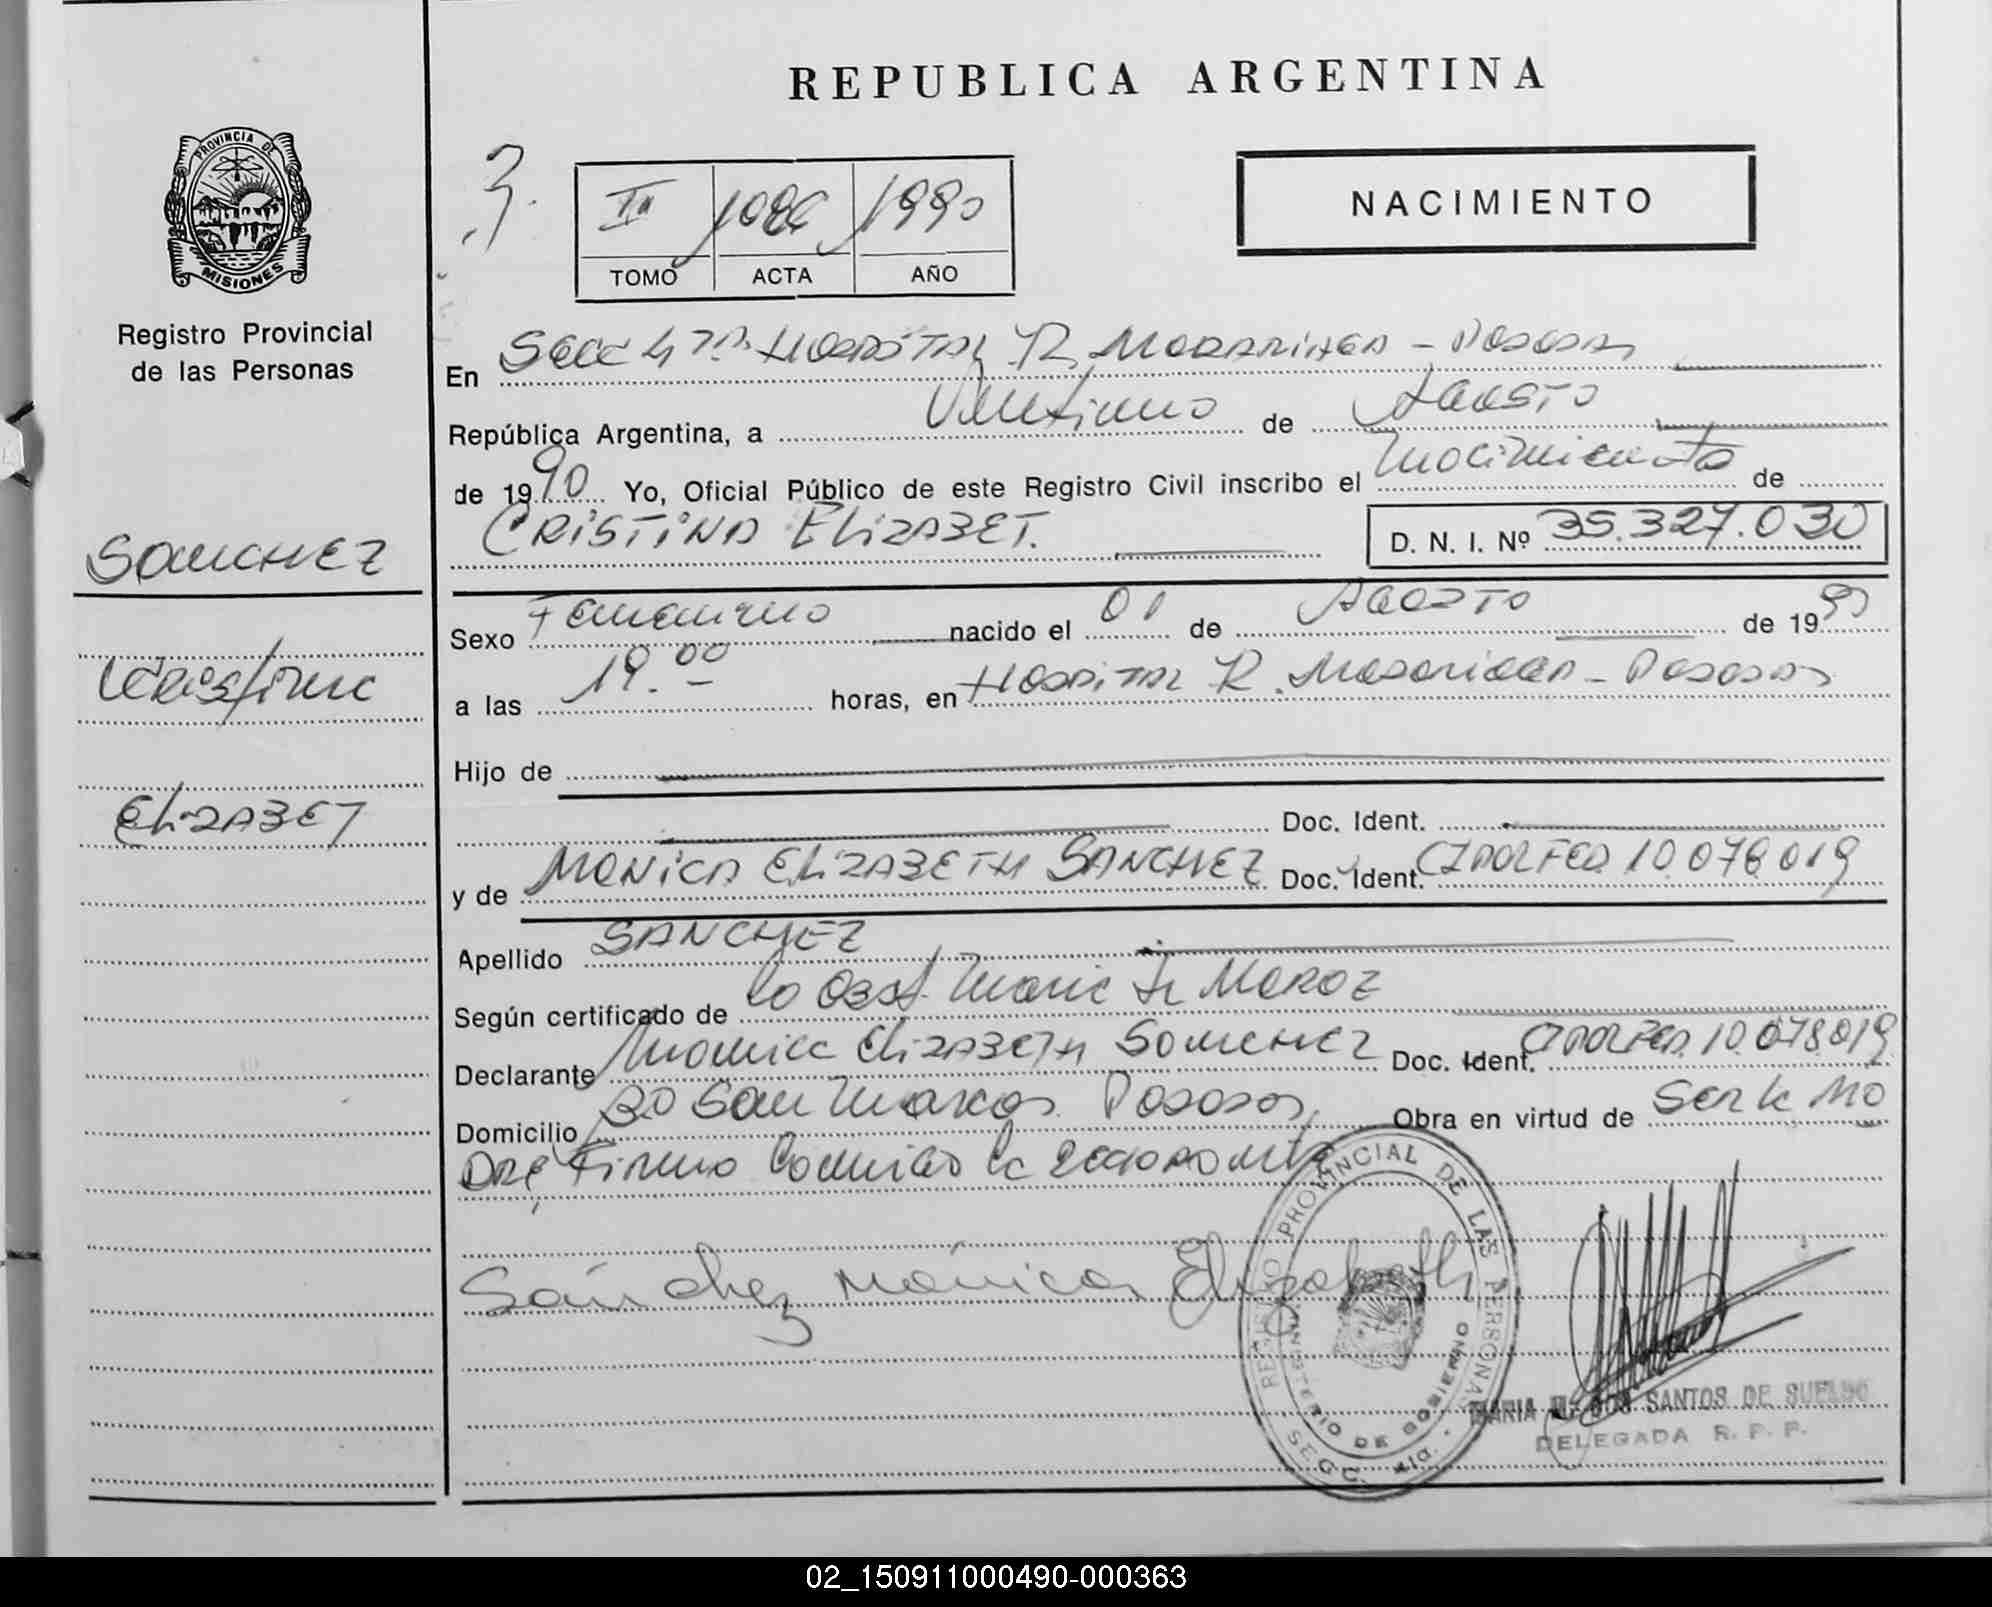 REPUBLICA ARGENTINA
PROVINCIA DE
MISIONES
Registro Provincial
de las Personas
3
II 1086 1990
TOMO ACTA AÑO
NACIMIENTO
En Secc 4 Hospital R. Madariaga - Posadas
República Argentina, a Veintiuno de Agosto
de 1990 Yo, Oficial Público de este Registro Civil inscribo el nacimiento de
CRISTINA ELIZABET. D. N. I. Nº 35.327.030
SANCHEZ
Cristina
ELIZABET
Sexo Femenino nacido el 01 de Agosto de 1990
a las 19.00 horas, en Hospital R. Madariaga - Posadas
Hijo de
Doc. Ident.
y de MONICA ELIZABETH SANCHEZ Doc. Ident. 10.078.019
Apellido SANCHEZ
Según certificado de la Obst. Maria
Declarante Monica ELIZABETH SANCHEZ Doc. Ident. 10.078.019
Domicilio San Marcos Posadas Obra en virtud de ser la ma
dre, Firma Conmigo la
Sánchez Mónica Elizabeth
REGISTRO PROVINCIAL DE LAS PERSONAS
MINISTERIO DE GOBIERNO
MARIA DOS SANTOS DE SUELDO
DELEGADA R. P. P.
02_150911000490-000363